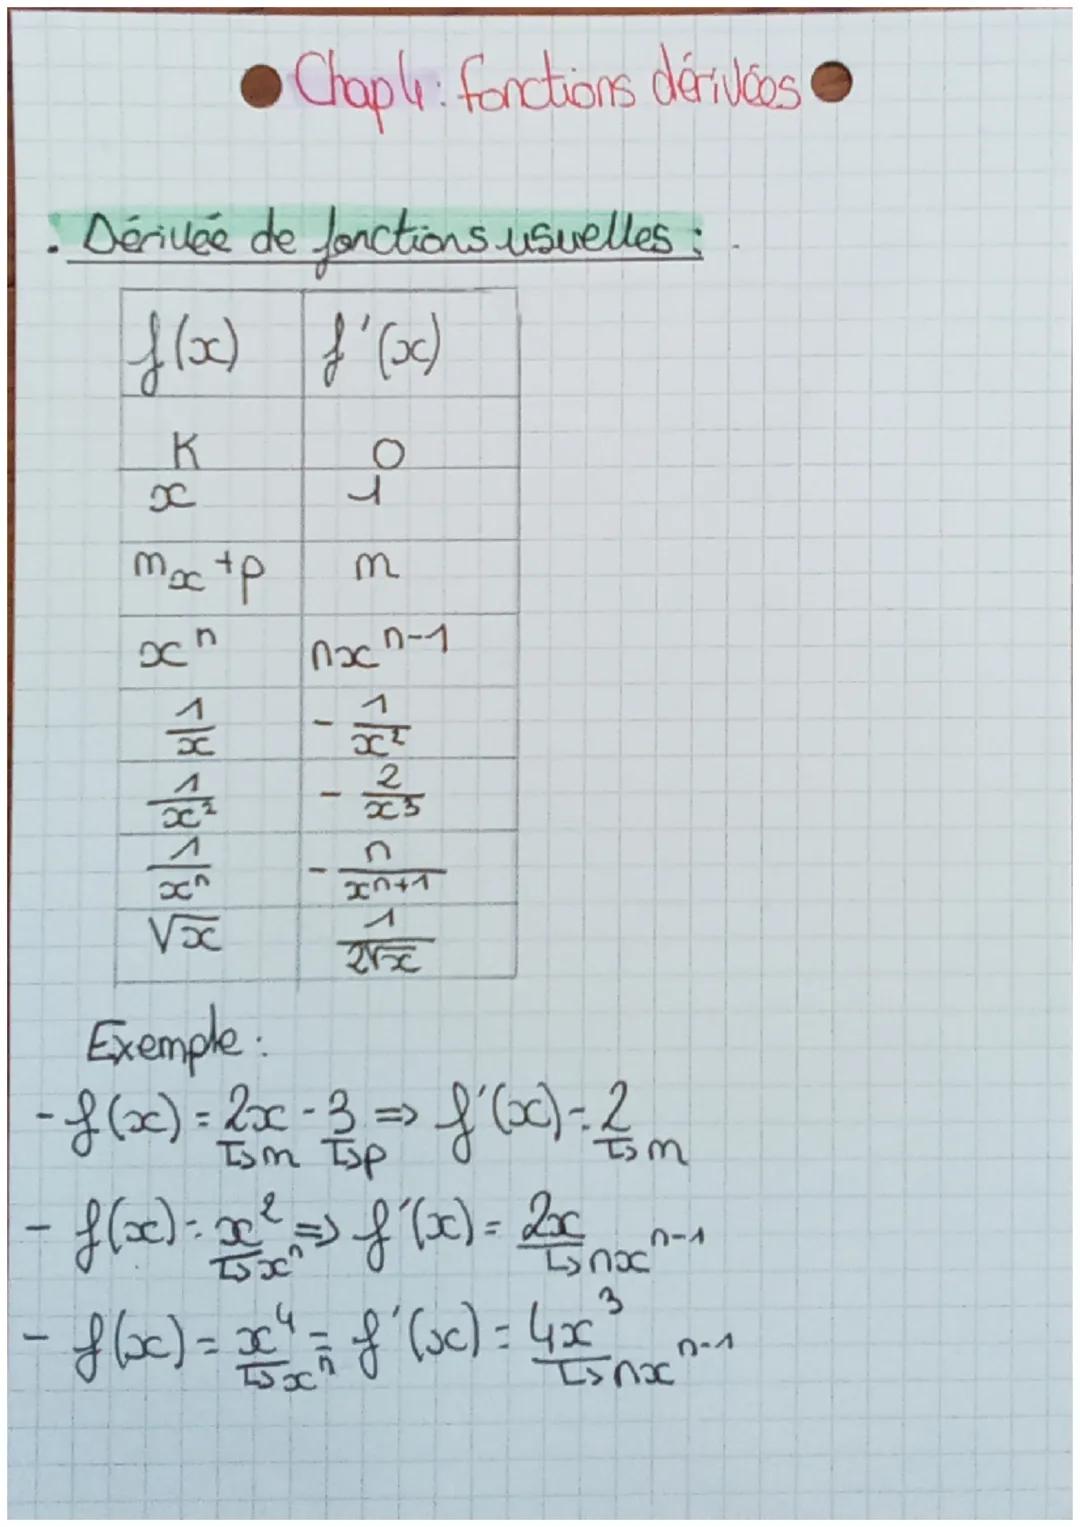 Chap 4: fonctions dérivées
. Dérivée de fonctions usuelles :
f(x) f'(x)
K 0
x 1
mx+p m
xⁿ nxⁿ⁻¹
1/x - 1/x²
1/x² - 2/x³
1/xⁿ - n/xⁿ⁺¹
√x 1/2√x
Exemple :
- f(x) = 2x - 3 => f'(x) = 2
↳m ↳p ↳m
- f(x) = x² => f'(x) = 2x
↳xⁿ ↳nxⁿ⁻¹
- f(x) = x⁴ = f'(x) = 4x³
↳xⁿ ↳nxⁿ⁻¹